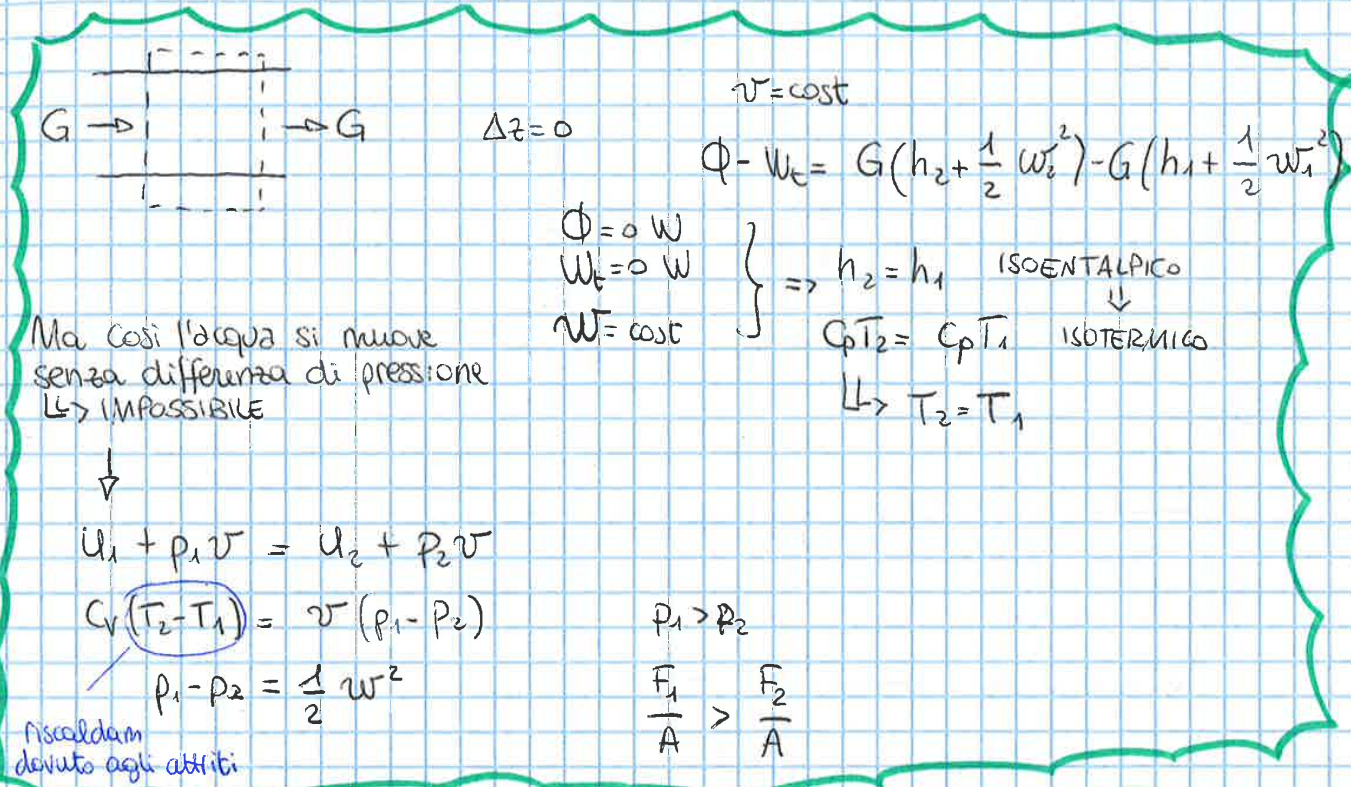 v = cost
G → → G Δz = 0
Φ - Wt = G(h₂ + 1/2 w₂²) - G(h₁ + 1/2 w₁²)
Φ = 0 W
Wt = 0 W
w = cost
} => h₂ = h₁ ISOENTALPICO
⇓
CpT₂ = CpT₁ ISOTERMICO
↳ T₂ = T₁
Ma così l'acqua si muove
senza differenza di pressione
↳ IMPOSSIBILE
↓
u₁ + p₁v = u₂ + p₂v
Cv(T₂ - T₁) = v(p₁ - p₂)
p₁ - p₂ = 1/2 w²
riscaldam
dovuto agli attriti
p₁ > p₂
F₁/A > F₂/A